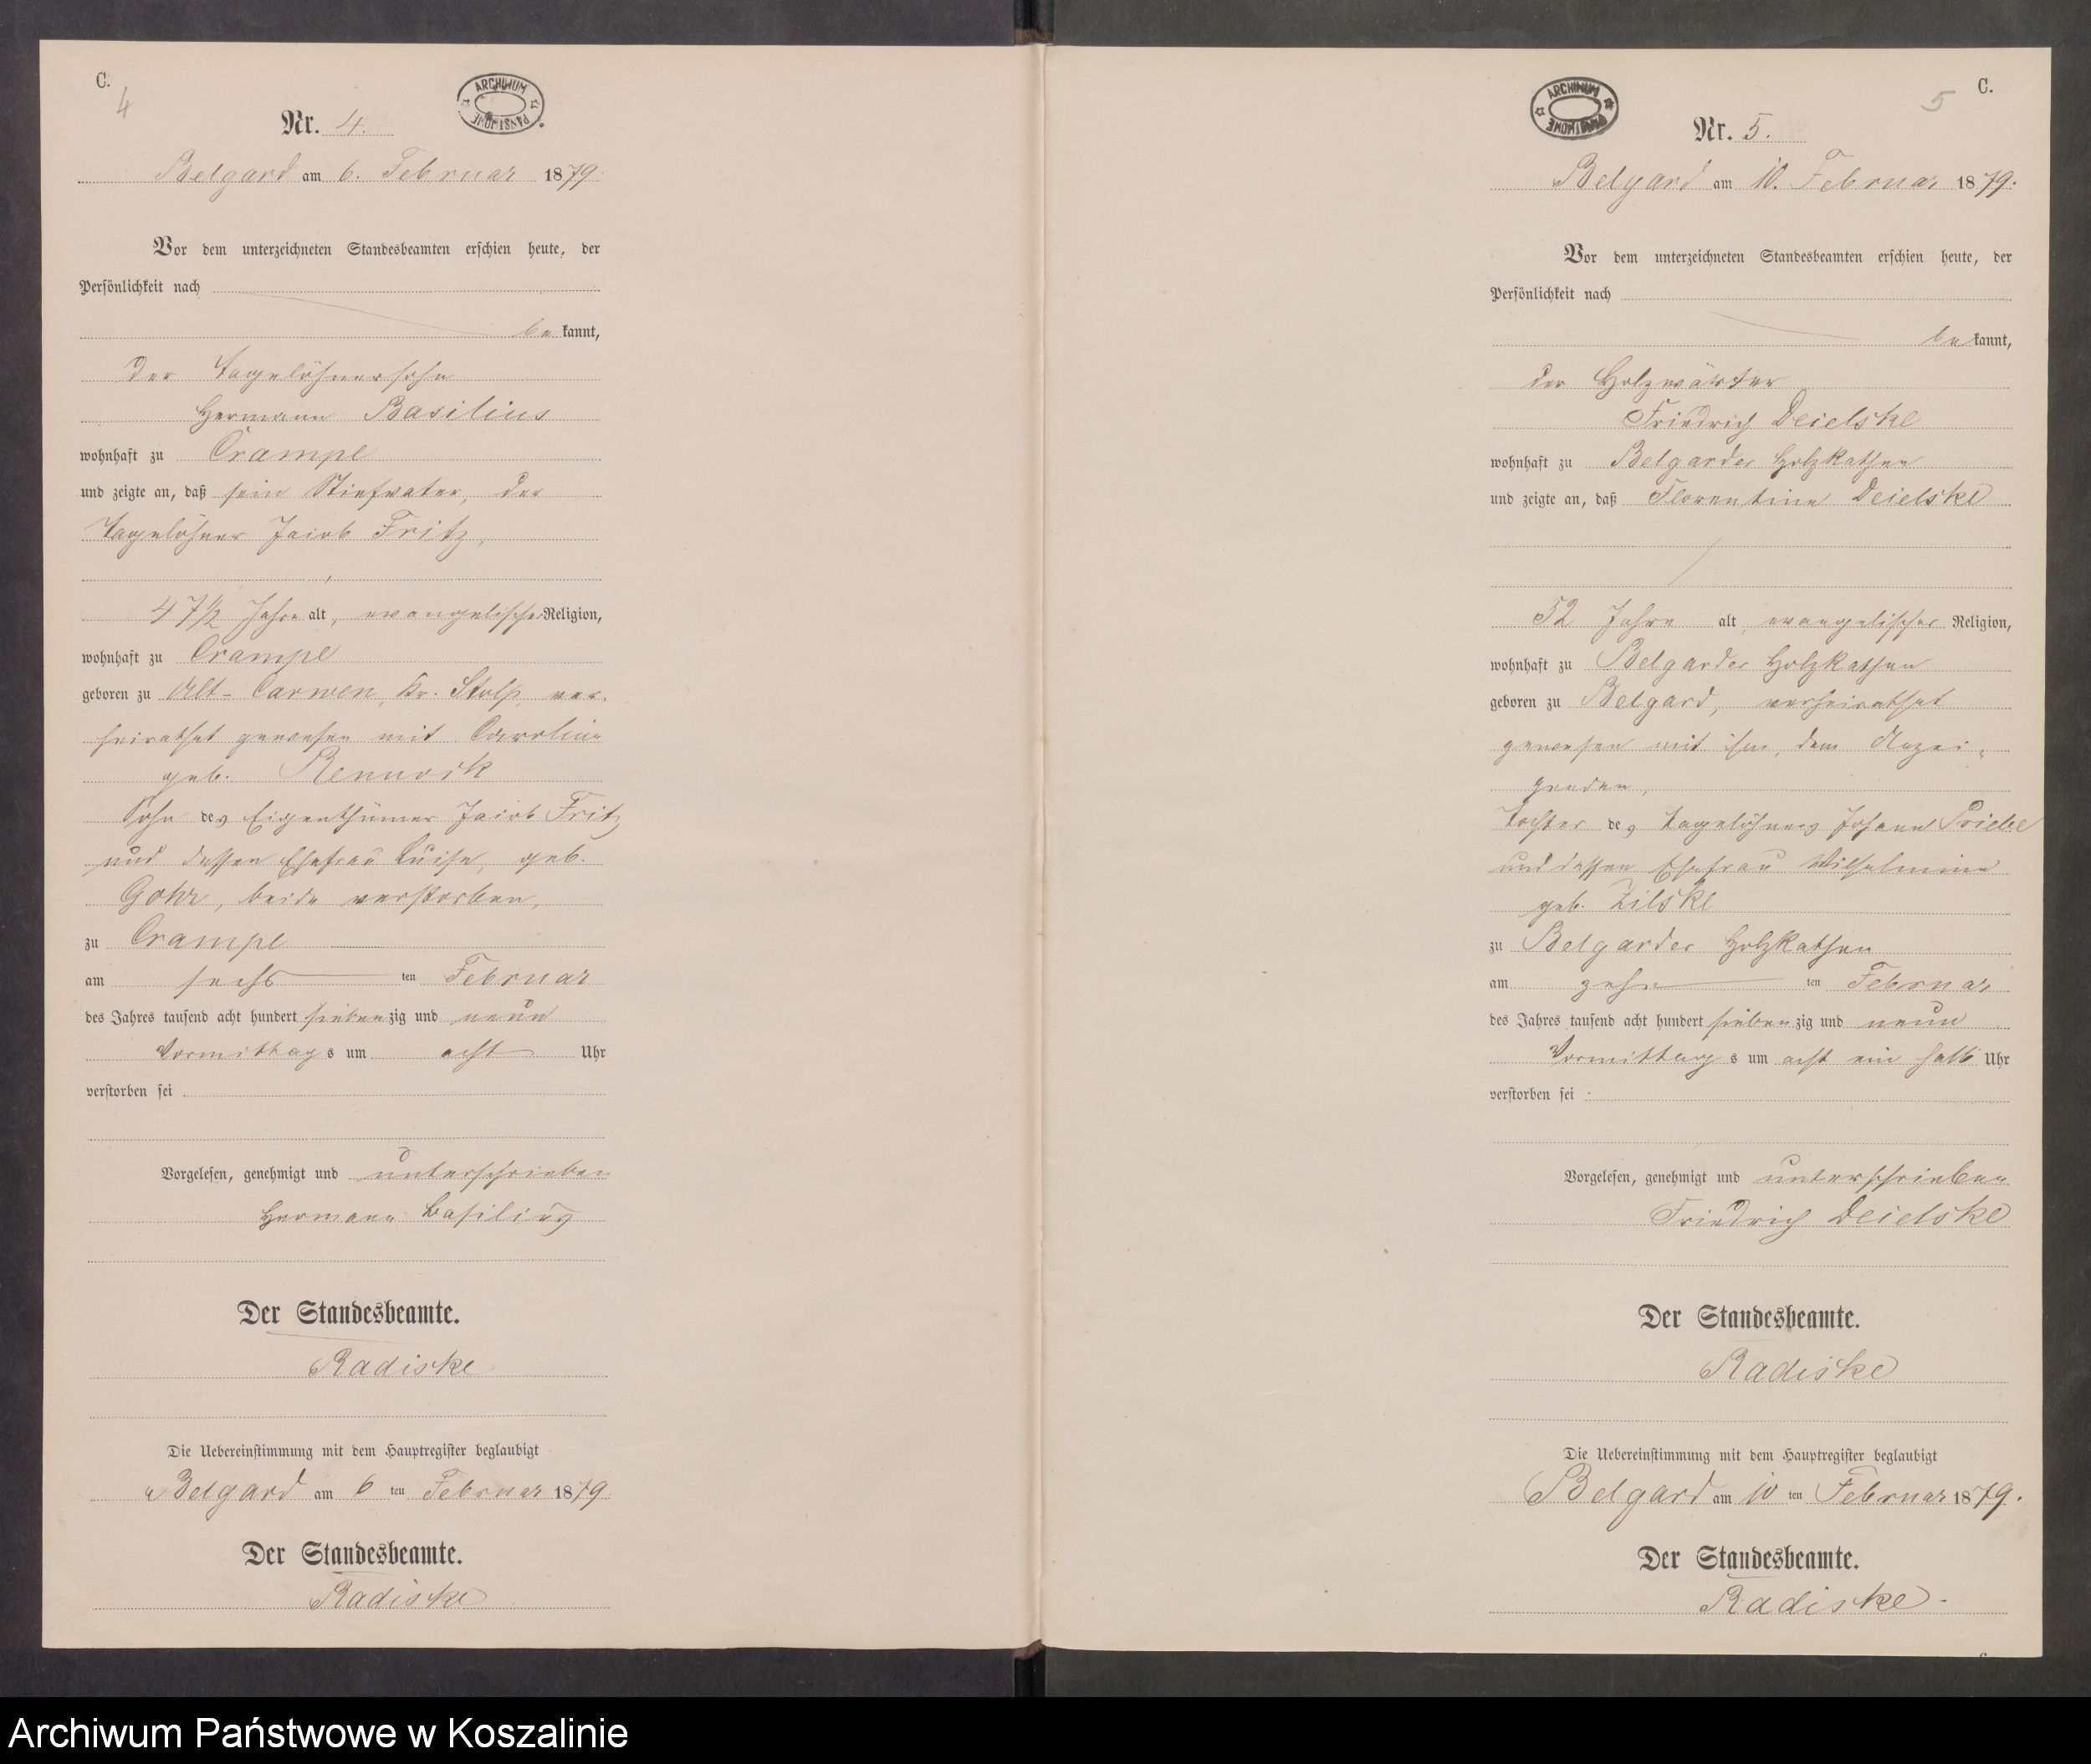 C.
4
Nr. 4.
ARCHIWUM PAŃSTWOWE
Belgard am 6. Februar 1879.
Vor dem unterzeichneten Standesbeamten erschien heute, der
Persönlichkeit nach
bekannt,
der Tagelöhnersohn
Hermann Basilius
wohnhaft zu Crampe
und zeigte an, daß sein Stiefvater, der
Tagelöhner Jacob Fritz,
47 1/2 Jahre alt, evangelischer Religion,
wohnhaft zu Crampe
geboren zu Alt-Carwen, Kr. Stolp, ver-
heirathet gewesen mit Caroline
geb. Rennock
Sohn des Eigenthümer Jacob Fritz
und dessen Ehefrau Luise, geb.
Gohr, beide verstorben,
zu Crampe
am sechsten Februar
des Jahres tausend acht hundert siebenzig und neun
Vormittags um acht Uhr
verstorben sei.
Vorgelesen, genehmigt und unterschrieben
Hermann Basilius
Der Standesbeamte.
Radiske
Die Uebereinstimmung mit dem Hauptregister beglaubigt
Belgard am 6ten Februar 1879
Der Standesbeamte.
Radiske
C.
5
Nr. 5.
ARCHIWUM PAŃSTWOWE
Belgard am 10. Februar 1879.
Vor dem unterzeichneten Standesbeamten erschien heute, der
Persönlichkeit nach
bekannt,
der Holzwärter
Friedrich Deielske
wohnhaft zu Belgarder Holzkathen
und zeigte an, daß Florentine Deielske
52 Jahre alt, evangelischer Religion,
wohnhaft zu Belgarder Holzkathen
geboren zu Belgard, verheirathet
gewesen mit ihm, dem Anzei-
genden,
Tochter des Tagelöhners Johann Priebe
und dessen Ehefrau Wilhelmine
geb. Zilske
zu Belgarder Holzkathen
am zehnten Februar
des Jahres tausend acht hundert siebenzig und neun
Vormittags um acht ein halb Uhr
verstorben sei.
Vorgelesen, genehmigt und unterschrieben
Friedrich Deielske
Der Standesbeamte.
Radiske
Die Uebereinstimmung mit dem Hauptregister beglaubigt
Belgard am 10ten Februar 1879.
Der Standesbeamte.
Radiske.
Archiwum Państwowe w Koszalinie